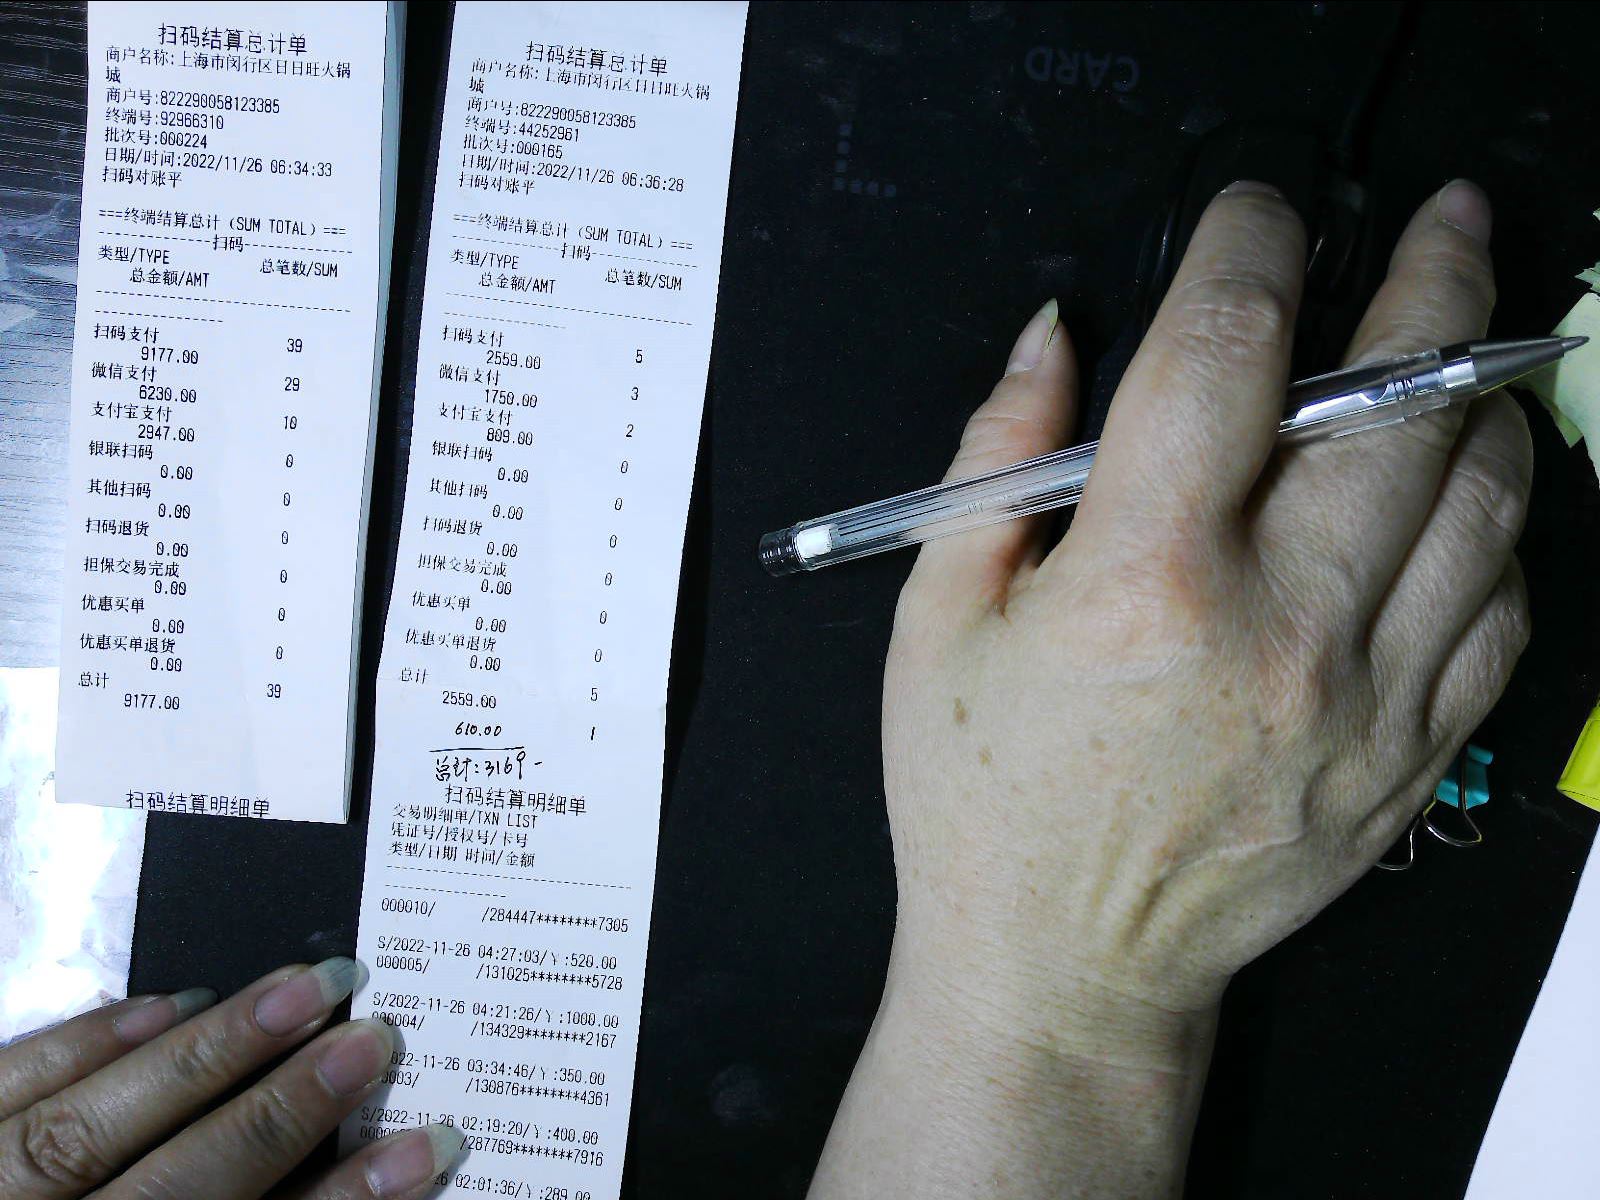 扫码结算总计单
商户名称:上海市闵行区日日旺火锅
城
商户号:822290058123385
终端号:92966310
批次号:000224
日期/时间:2022/11/26 06:34:33
扫码对账平
===终端结算总计(SUM TOTAL)===
-------------扫码-------------
类型/TYPE 总笔数/SUM
总金额/AMT
扫码支付 39
9177.00
微信支付 29
6230.00
支付宝支付 10
2947.00
银联扫码 0
0.00
其他扫码 0
0.00
扫码退货 0
0.00
担保交易完成 0
0.00
优惠买单 0
0.00
优惠买单退货 0
0.00
总计 39
9177.00
扫码结算明细单
扫码结算总计单
商户名称:上海市闵行区日日旺火锅
城
商户号:822290058123385
终端号:44252961
批次号:000165
日期/时间:2022/11/26 06:36:28
扫码对账平
===终端结算总计(SUM TOTAL)===
-------------扫码-------------
类型/TYPE 总笔数/SUM
总金额/AMT
扫码支付 5
2559.00
微信支付 3
1750.00
支付宝支付 2
809.00
银联扫码 0
0.00
其他扫码 0
0.00
扫码退货 0
0.00
担保交易完成 0
0.00
优惠买单 0
0.00
优惠买单退货 0
0.00
总计 5
2559.00
610.00 1
总计:3169-
扫码结算明细单
交易明细单/TXN LIST
凭证号/授权号/卡号
类型/日期 时间/金额
000010/ /284447********7305
S/2022-11-26 04:27:03/¥:520.00
000005/ /131025********5728
S/2022-11-26 04:21:26/¥:1000.00
000004/ /134329********2167
022-11-26 03:34:46/¥:350.00
0003/ /130876********4361
S/2022-11-26 02:19:20/¥:400.00
/287769********7916
26 02:01:36/¥:289.00
CARD